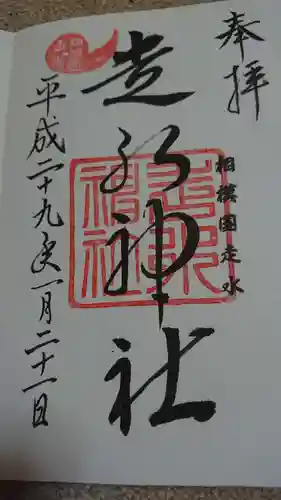 奉拝
相模國走水
走水神社
平成二十九年一月二十一日